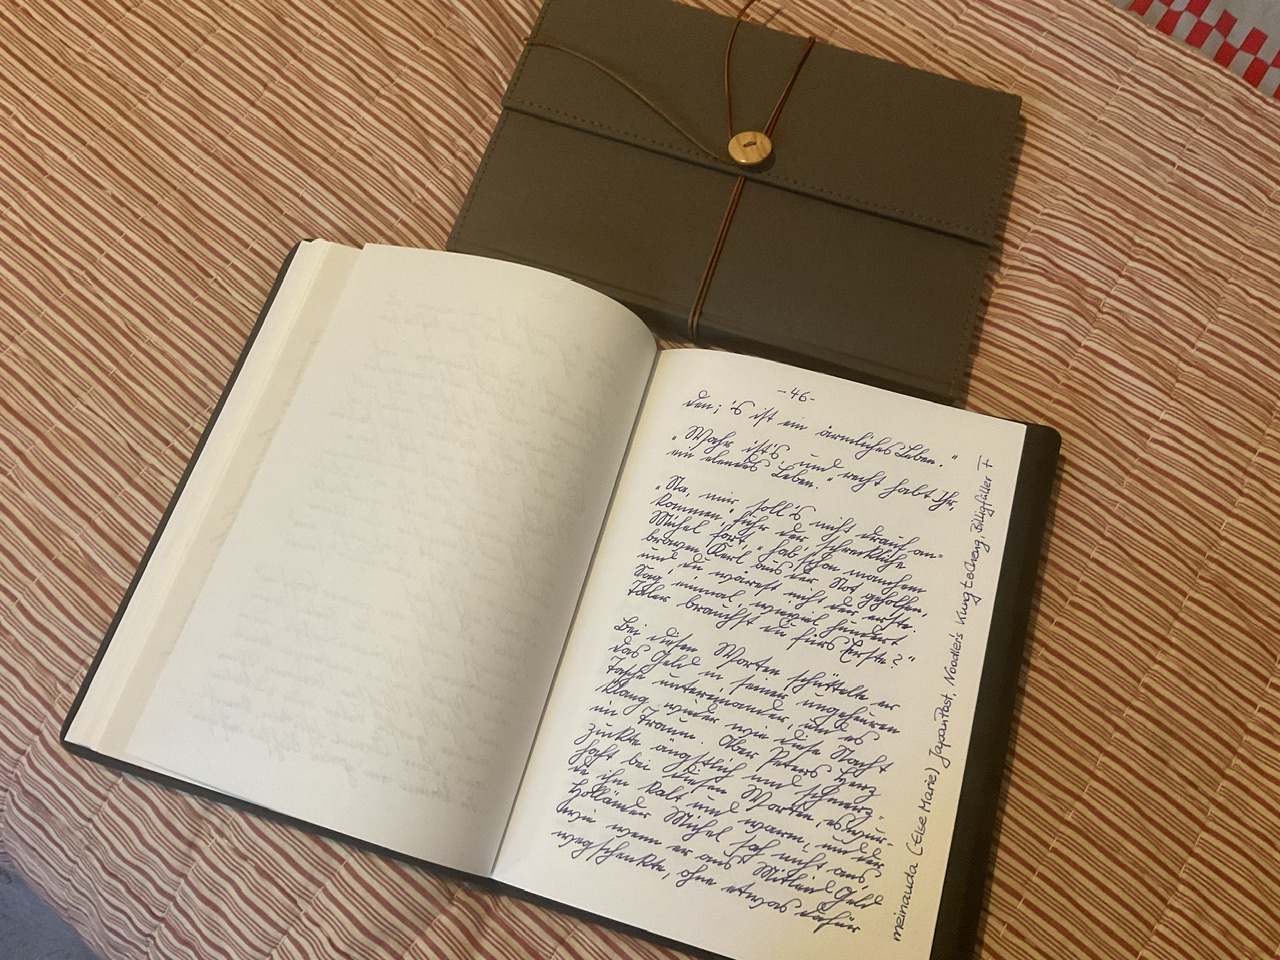 -46-
den; 's ist ein ärmliches Leben."
"Wahr ist's, und recht habt Ihr,
ein elendes Leben."
"Na, mir soll's nicht drauf an-
kommen," fuhr der schreckliche
Michel fort, "hab' schon manchem
braven Kerl aus der Not geholfen,
und du wärest nicht der erste.
Sag' einmal, wieviel hundert
Taler brauchst du fürs Erste?"
Bei diesen Worten schüttelte er
das Geld in seiner ungeheuren
Tasche untereinander, und es
klang wieder wie diese Nacht
im Traum. Aber Peters Herz
zuckte ängstlich und schmerz-
haft bei diesen Worten, es wur-
de ihm kalt und warm, und der
Holländer Michel sah nicht aus,
wie wenn er aus Mitleid Geld
wegschenkte, ohne etwas dafür
meinauda (Else Marie) JapanPast, Noodler's Kung te Cheng, Billigfüller F